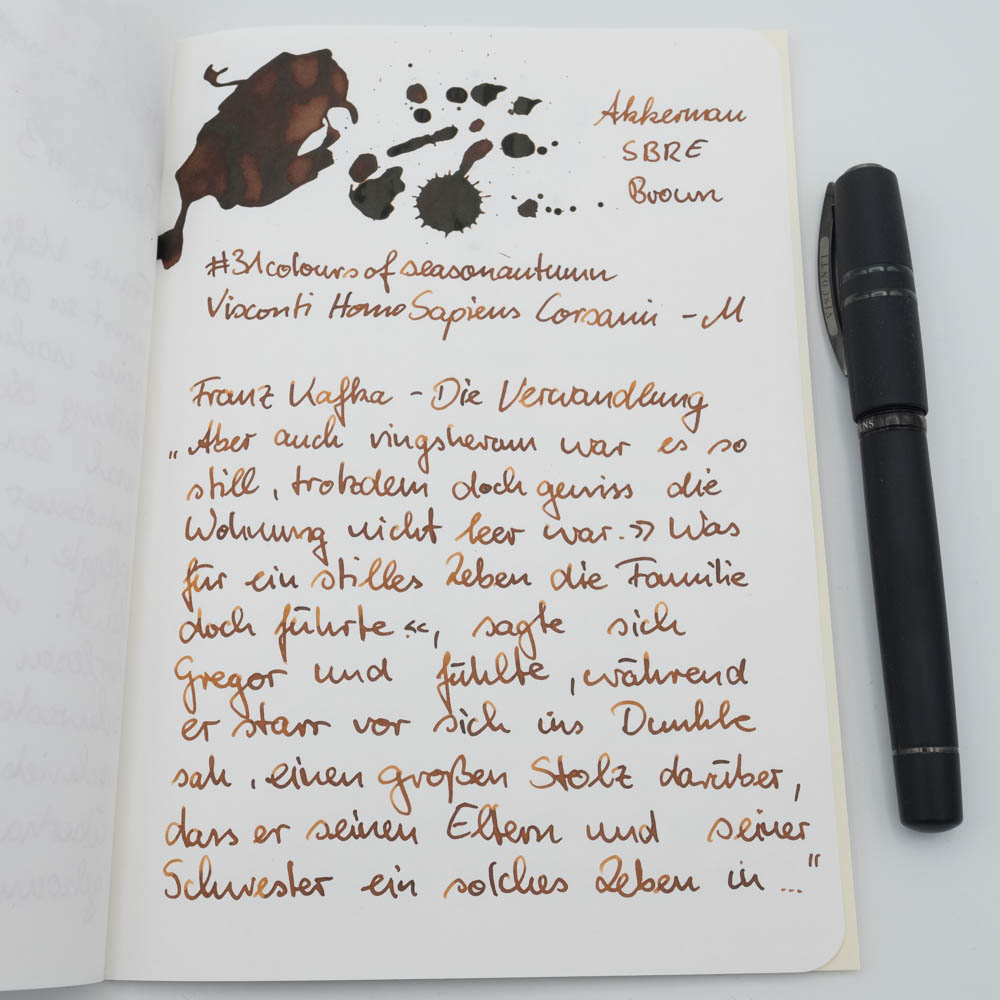 Akkerman
SBRE
Brown
#31coloursofseasonautumn
Visconti Homo Sapiens Corsani - M
Franz Kafka - Die Verwandlung
„Aber auch ringsherum war es so
still, trotzdem doch gewiss die
Wohnung nicht leer war. » Was
für ein stilles Leben die Familie
doch führte «, sagte sich
Gregor und fühlte, während
er starr vor sich ins Dunkle
sah, einen großen Stolz darüber,
dass er seinen Eltern und seiner
Schwester ein solches Leben in ..."